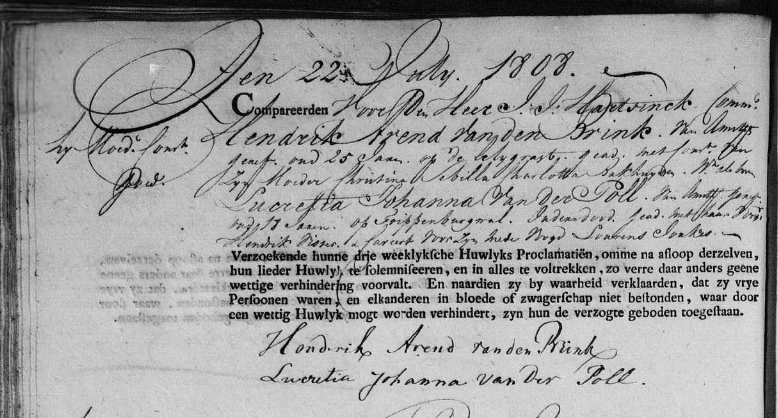 Den 22e July. 1808.
Compareerden Voor Den Heer J. J. Hartsinck Comms.
Hendrik Arend van den Brink. van Amst.
geref. oud 25 Jaar. op de Lelygragt. geads. met Const. van
Zyn Moeder Christina Sibilla Charlotta Bakhuyzen. Wed.
Lucretia Johanna Van der Poll. Van Amst.
oud Jaren. op Ouders dood. geads. met haar Voogd
Hendrik Visser Voor Zyn mede Voogd Lourens Jonkes.
Verzoekende hunne drie weeklyksche Huwlyks Proclamatiën, omme na afloop derzelven,
hun lieder Huwlyk te solemniseeren, en in alles te voltrekken, zo verre daar anders geene
wettige verhindering voorvalt. En naardien zy by waarheid verklaarden, dat zy vrye
Persoonen waren, en elkanderen in bloede of zwagerschap niet bestonden, waar door
een wettig Huwlyk mogt worden verhindert, zyn hun de verzogte geboden toegestaan.
Hendrik Arend van den Brink
Lucretia Johanna van Der Poll.